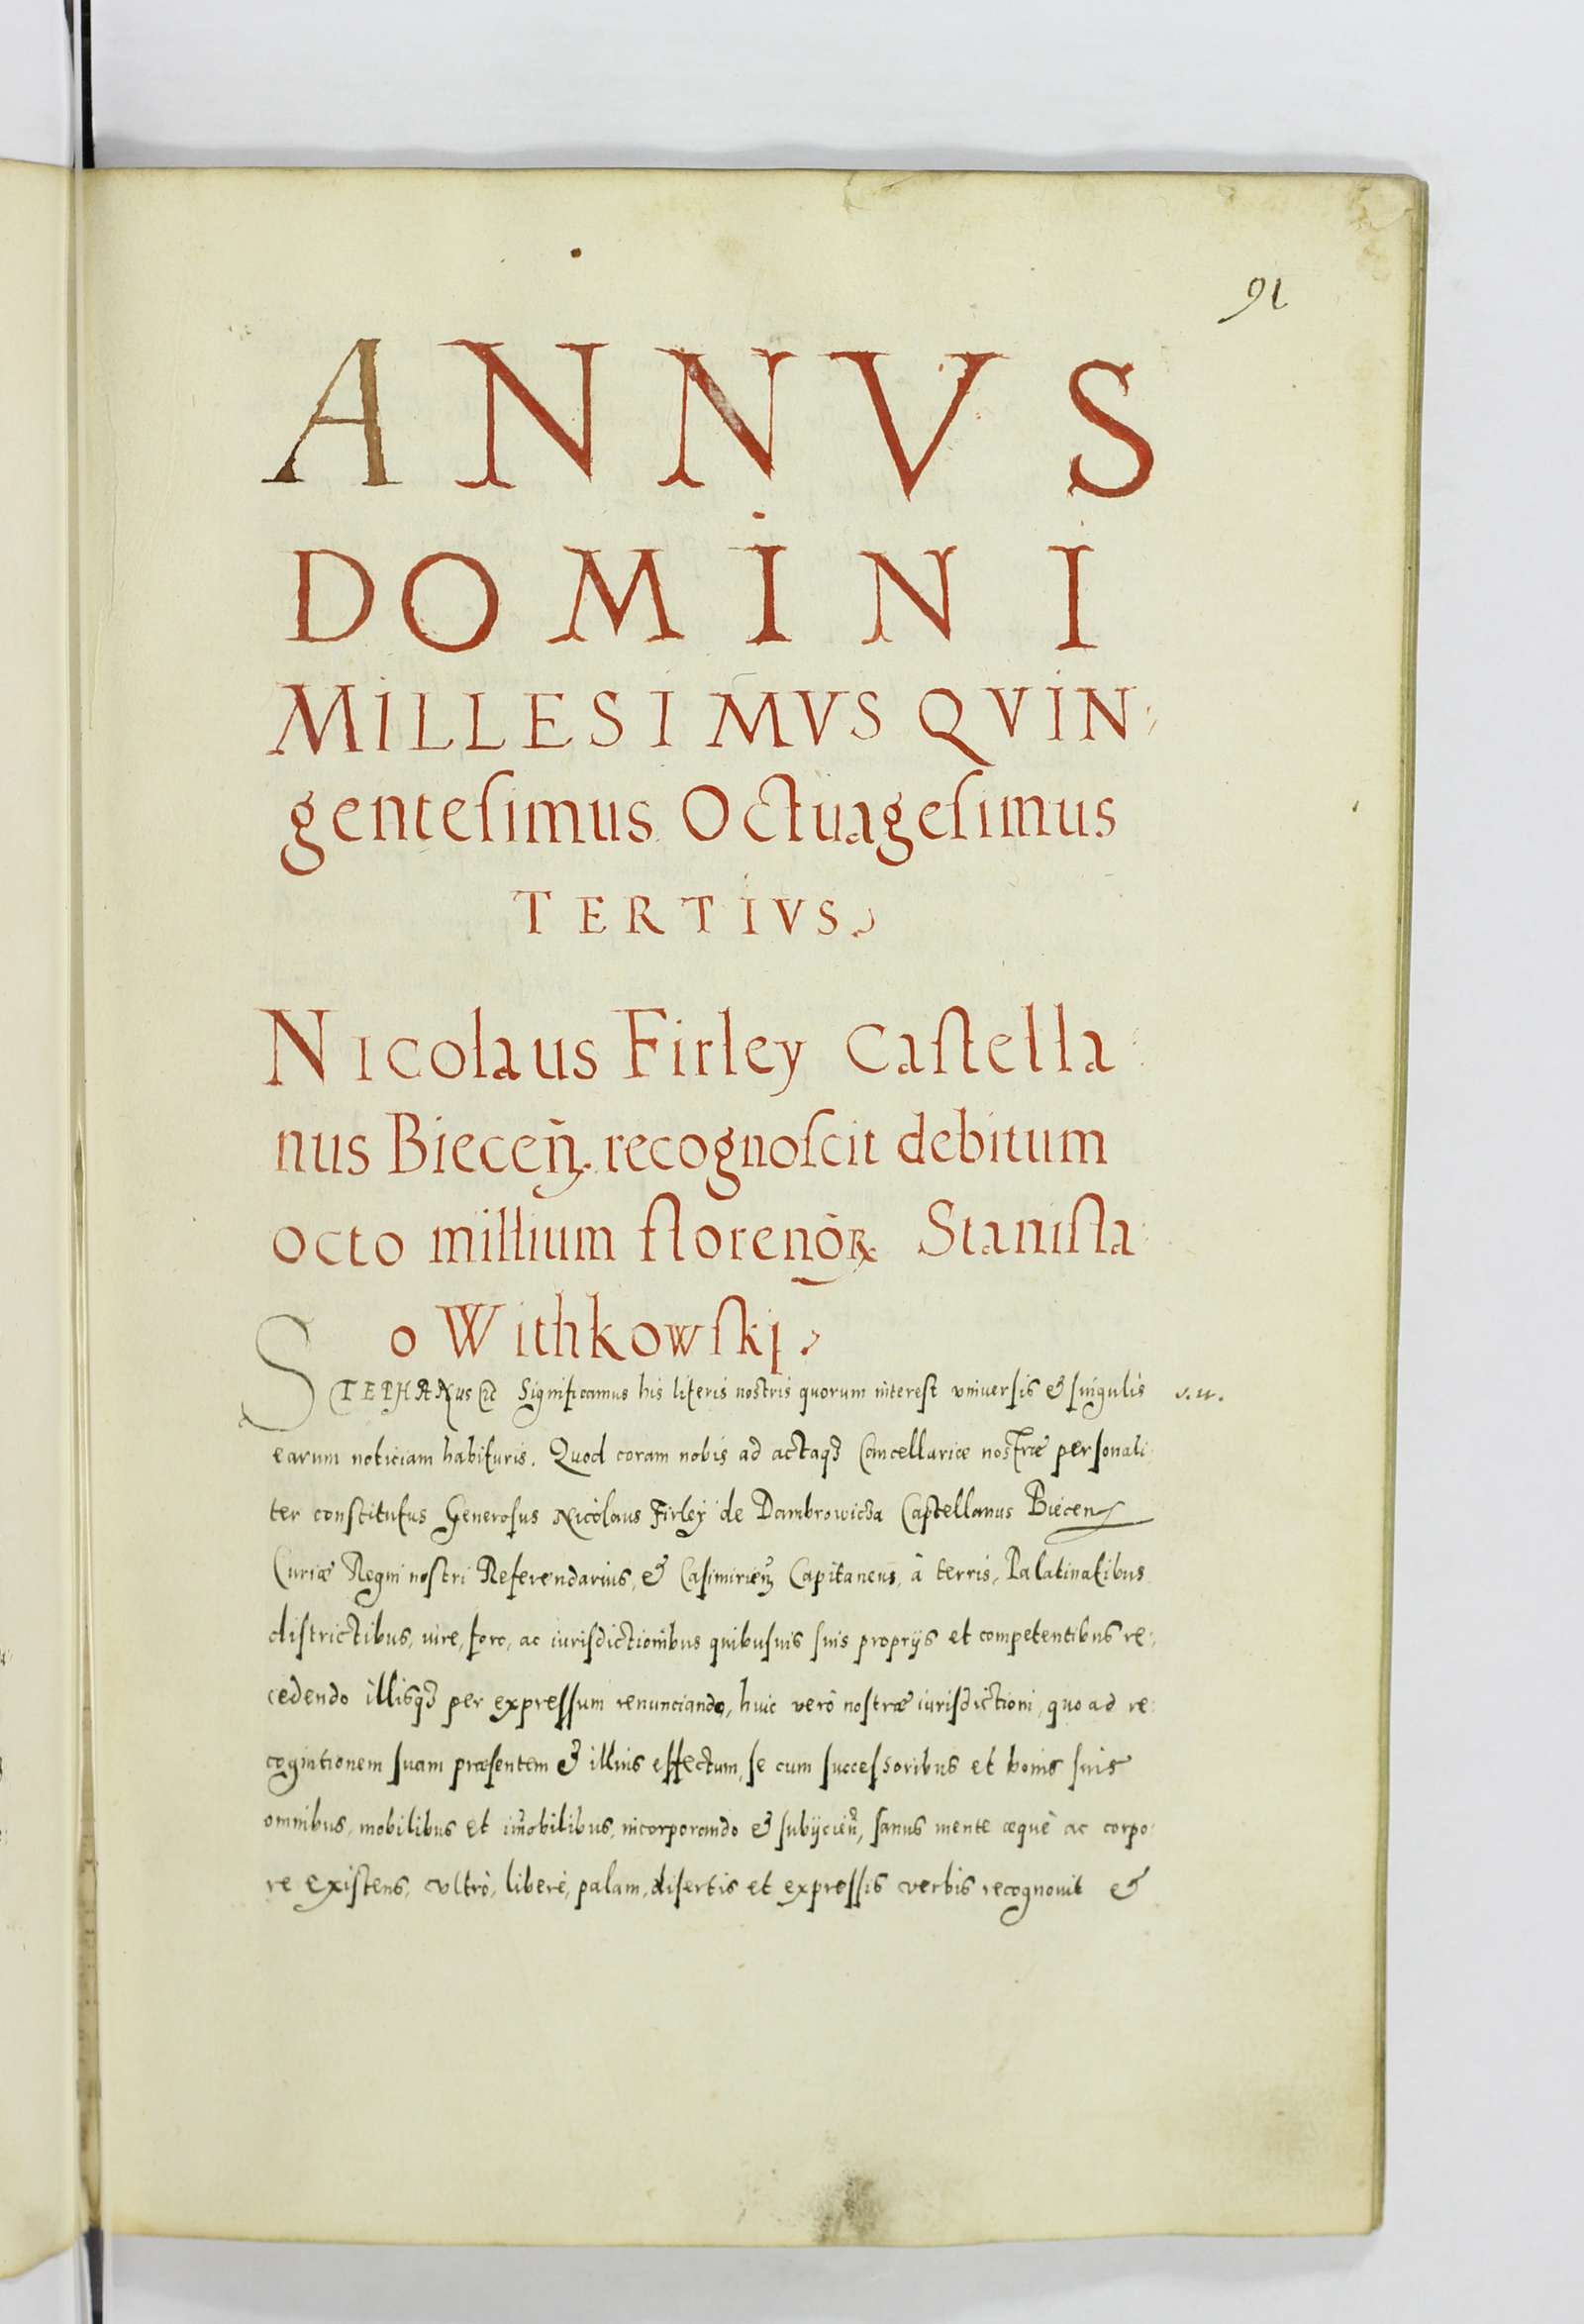 91
ANNVS
DOMINI
MILLESIMVS QVIN-
genteſimus Octuageſimus
TERTIVS.
Nicolaus Firley Caſtella
nus Biecen̄. recognoſcit debitum
octo millium florenōꝝ Staniſla
o Withkowſki.
STEPHANus etc Significamus his literis nostris quorum interest vniuerſis & ſingulis v. u.
earum noticiam habituris. Quod coram nobis ad actaqꝫ Cancellariæ nostræ perſonali
ter constitutus Generoſus Nicolaus Firleÿ de Dambrowicza Caſtellanus Biecen
Curiæ Regni noſtri Referendarius, & Caſimirien̄ Capitaneus, à terris, Palatinatibus
diſtrictibus, iure, foro, ac iuriſdictionibus quibuſuis ſuis proprijs et competentibus re-
cedendo illisqꝫ per expreſſum renunciando, huic verò noſtræ iuriſdictioni, quo ad re
cognitionem ſuam præſentem & illius effectum, ſe cum ſucceſsoribus et bonis ſuis
omnibus, mobilibus et im̄obilibus, incorporando & ſubijcien̄, ſanus mente æquè ac corpo
re exiſtens, vltrò, liberè, palam, diſertis et expreſſis verbis recognouit &